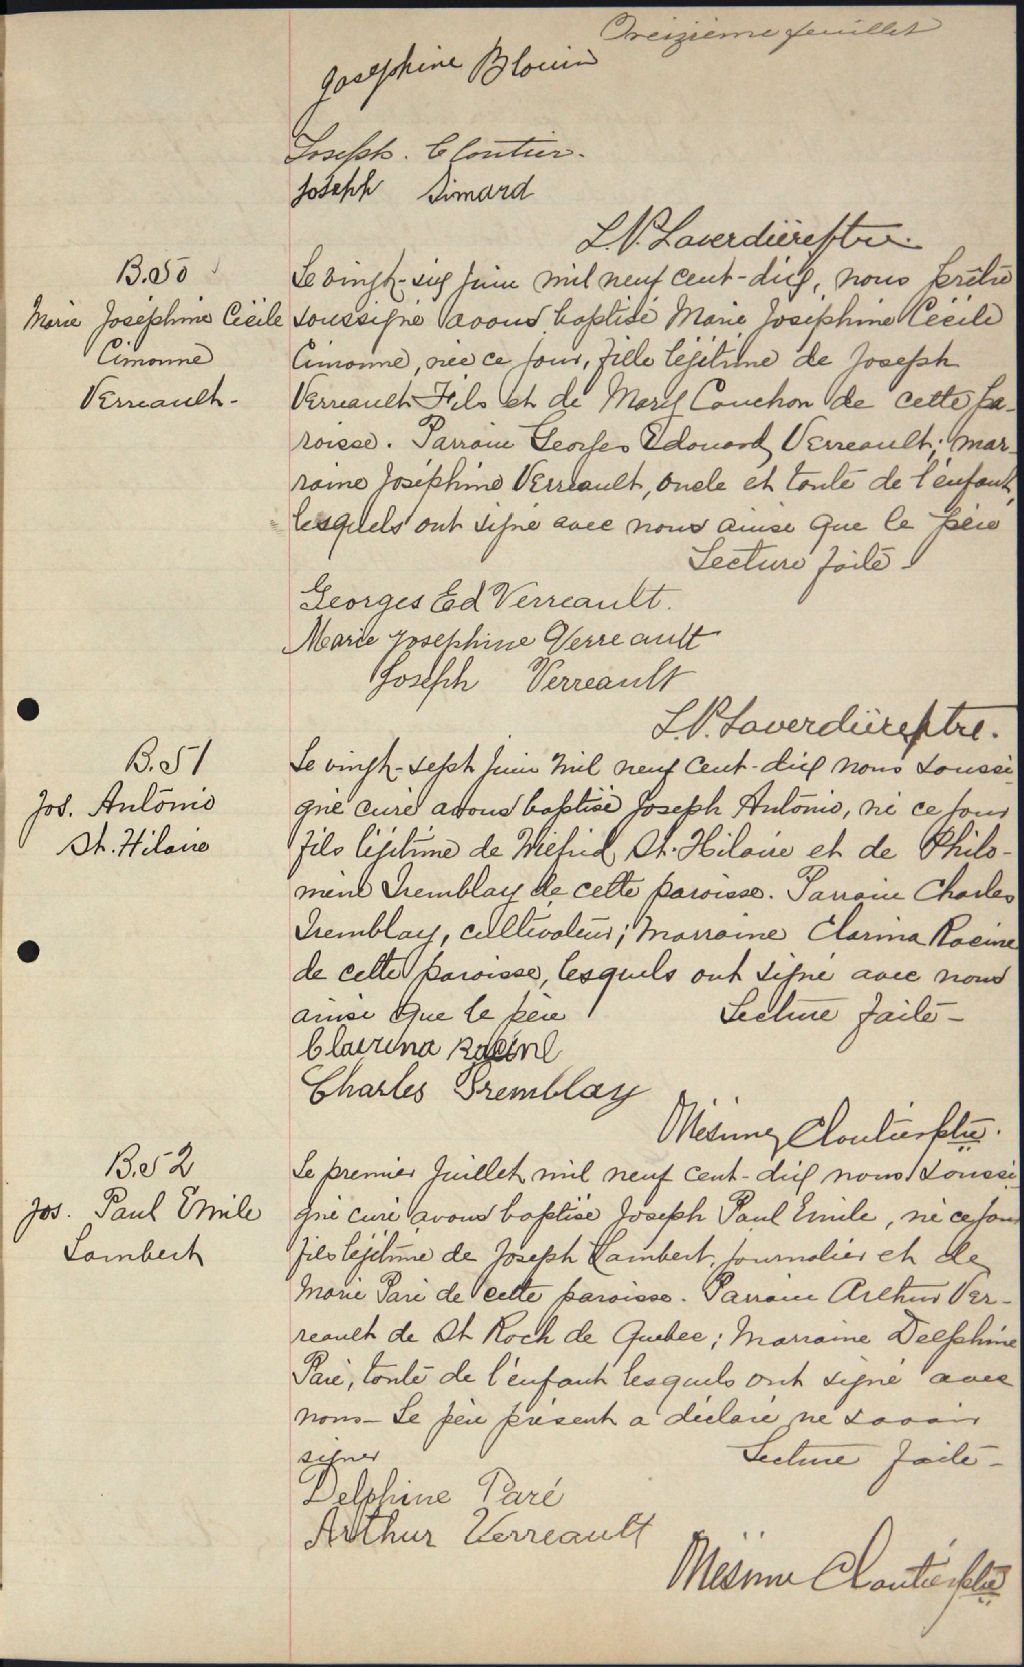 Treizième feuillet
Josephine Blouin
Joseph. Cloutier.
Joseph Simard
L.P. Laverdière ptre.
B. 50
Marie Joséphine Cécile
Cimonne
Verreault -
Le vingt-six juin mil neuf cent-dix, nous prêtre
soussigné avons baptisé Marie Joséphine Cécile
Cimonne, née ce jour, fille légitime de Joseph
Verreault Fils et de Mary Cauchon de cette pa-
roisse. Parrain Georges Edouard Verreault; mar-
raine Joséphine Verreault, oncle et tante de l'enfant,
lesquels ont signé avec nous ainsi que le père
Lecture faite -
Georges Ed Verreault.
Marie Josephine Verreault
Joseph Verreault
L.P. Laverdière ptre.
B. 51
Jos. Antonio
St. Hilaire
Le vingt-sept juin mil neuf cent-dix nous soussi-
gné curé avons baptisé Joseph Antonio, né ce jour
fils légitime de Wilfrid St. Hilaire et de Philo-
mène Tremblay de cette paroisse. Parrain Charles
Tremblay, cultivateur; marraine Clarina Racine
de cette paroisse, lesquels ont signé avec nous
ainsi que le père Lecture faite -
Claurina Racine
Charles Tremblay
Onésime Cloutier ptre.
B. 52
Jos. Paul Emile
Lambert
Le premier Juillet mil neuf cent-dix nous soussi-
gné curé avons baptisé Joseph Paul Emile, né ce jour
fils légitime de Joseph Lambert, journalier et de
Marie Paré de cette paroisse. Parrain Arthur Ver-
reault de St Roch de Quebec; Marraine Delphine
Paré, tante de l'enfant lesquels ont signé avec
nous - Le père présent a déclaré ne savoir
signer Lecture faite -
Delphine Paré
Arthur Verreault
Onésime Cloutier ptre